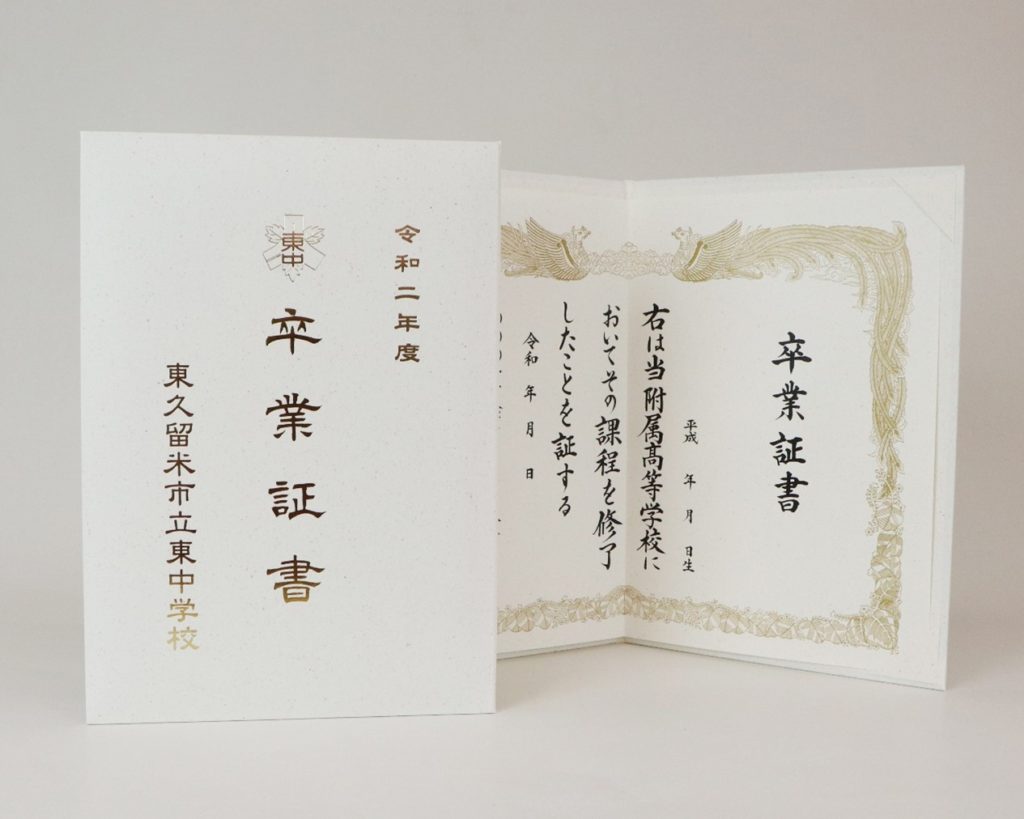 令和二年度
東中
卒業証書
東久留米市立東中学校
卒業証書
平成 年 月 日生
右は当附属高等学校に
おいてその課程を修了
したことを証する
令和 年 月 日